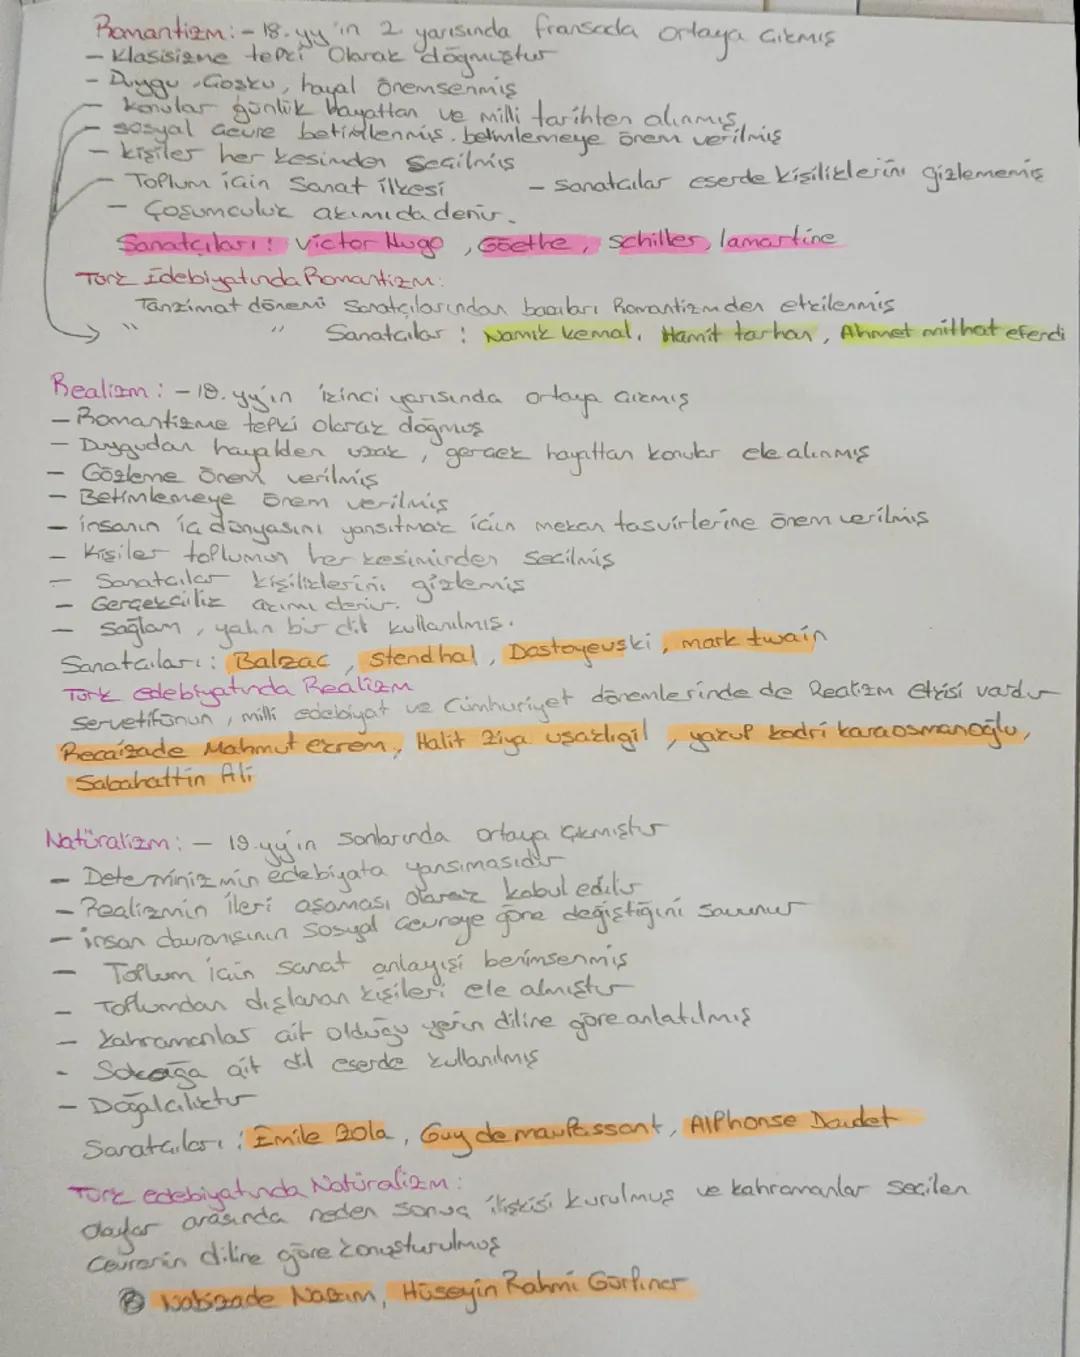 Romantizm: - 18. yy'in 2 yarısında fransada ortaya çıkmış
- Klasisizme tepki olarak doğmuştur
- Duygu, Coşku, hayal önemsenmiş
- konular günlük hayattan ve milli tarihten alınmış,
- sosyal çevre betimlenmiş. betimlemeye önem verilmiş
- kişiler her kesimden seçilmiş
- Toplum için Sanat ilkesi - sanatcılar eserde kişiliklerini gizlememiş
- Coşumculuk akımıda denir.
Sanatçıları: victor Hugo, Goethe, schiller, lamartine
Türk Edebiyatında Romantizm:
Tanzimat dönemi Sanatçılarından bazıları Romantizmden etkilenmiş
" " Sanatcılar: Namık kemal, Hamit tarhan, Ahmet mithat efendi
Realizm: - 19. yy'ın ikinci yarısında ortaya çıkmış
- Romantizme tepki olarak doğmuş
- Duygudan hayalden uzak, gerçek hayattan konular ele alınmış
- Gözleme önem verilmiş
- Betimlemeye önem verilmiş
- insanın iç dünyasını yansıtmak için mekan tasvirlerine önem verilmiş
- Kişiler toplumun her kesiminden seçilmiş
- Sanatcılar kişiliklerini gizlemiş
- Gerçekçilik akımı denir.
- Sağlam, yalın bir dil kullanılmış.
Sanatcıları: Balzac, Stendhal, Dostoyevski, mark twain
Türk edebiyatında Realizm
servetifünun, milli edebiyat ve Cumhuriyet dönemlerinde de Realizm etkisi vardır
Recaizade Mahmut ekrem, Halit Ziya uşaklıgil, yakup kadri karaosmanoğlu,
Sabahattin Ali
Natüralizm: - 19.yy'ın sonlarında ortaya çıkmıştır
- Determinizmin edebiyata yansımasıdır
- Realizmin ileri aşaması olarak kabul edilir
- insan davranışının sosyal çevreye göre değiştiğini savunur
- Toplum için sanat anlayışı benimsenmiş
- Toplumdan dışlanan kişileri ele almıştır
- kahramanlar ait olduğu yerin diline göre anlatılmış
- Sokağa ait dil eserde kullanılmış
- Doğalcılıktır
Sanatcıları: Emile Zola, Guy de maupassant, Alphonse Daudet
Türk edebiyatında Natüralizm:
olaylar arasında neden sonuç ilişkisi kurulmuş ve kahramanlar seçilen
çevrenin diline göre konuşturulmuş
Nabizade Nazım, Hüseyin Rahmi Gürpınar